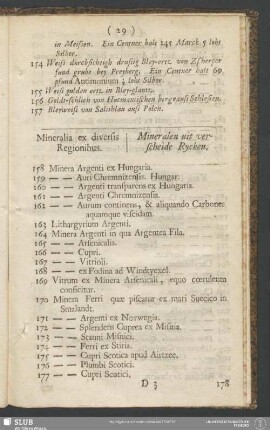 ( 29 )
in Meissen. Ein Centner halt 145 Marck 5 lobt
Silber.
154 Weiss durchscheigh drussig Bley-ertz von Zscherper
fund grube bey Freyberg. Ein Centner halt 60
pfund Antimonium ; lobe Silber.
155 Weiss gulden ertz in Bley-glantz.
156 Goldt-schlich von Hotmanischen bergkausz Schlesien.
157 Bleyweiss von Saltzblau ausz Polen.
Mineralia ex diversis
Regionibus.
Mineralen uit ver-
scheide Rycken.
158 Minera Argenti ex Hungaria.
159 — — Auri Chremnizensis. Hungar.
160 — — Argenti transparens ex Hungaria.
161 — — Argenti Chremnizensis.
162 — — Aurum continens, & aliquando Carbones
aquamque viscidam.
163 Lithargyrium Argenti.
164 Minera Argenti in qua Argentea Fila.
165 — — Arsenicalis.
166 — — Cupri.
167 — — Vitrioli.
168 — — ex Fodina ad Windxyexel.
169 Vitrum ex Minera Arsenicali, equo cœrulenta
conficitur.
170 Minera Ferri quæ piscatur ex mari Suecico in
Smalandt.
171 — — Argenti ex Norwegia.
172 — — Splendens Cuprea ex Misnia.
173 — — Stanni Misnici.
174 — — Ferri ex Stiria.
175 — — Cupri Scotica apud Airtzee.
176 — — Plumbi Scotici.
177 — — Cupri Scatici,
D 3
178
SLUB